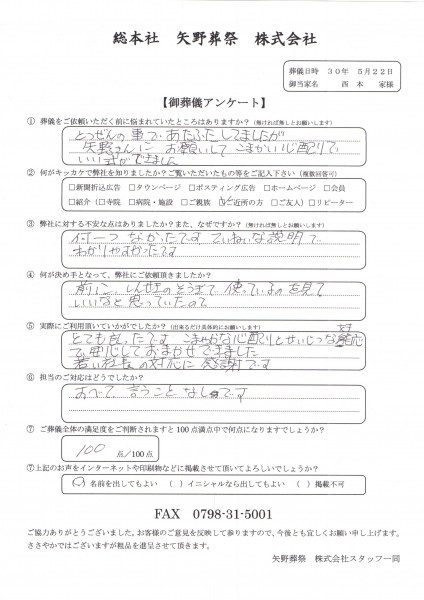 総本社　矢野葬祭　株式会社
葬儀日時　３０年　５月２２日
御当家名　西　本　家様
【御葬儀アンケート】
① 葬儀をご依頼いただく前に悩まれていたところはありますか？（無ければ無しとお願いします）
とつぜんの事で あたふたしてましたが
矢野さんに お願いして こまかい心配りで
いい式ができました
② 何がキッカケで弊社を知りましたか？ご覧いただいたもの等をご記入下さい（複数回答可）
□新聞折込広告　□タウンページ　□ポスティング広告　□ホームページ　□会員
□紹介（□寺院　□病院・施設　□ご親族　☑ご近所の方　□ご友人）□リピーター
③ 弊社に対する不安な点はありましたか？また、なぜですか？（無ければ無しとお願いします）
何一つ なかったです ていねいな説明で
わかりやすかったです
④ 何が決め手となって、弊社にご依頼頂きましたか？
前に、しんせきのそうぎで 使っているのを見て
いいなと思っていたので
⑤ 実際にご利用頂いていかがでしたか？（出来るだけ具体的にお願いします）
とても良ったです こまやかな心配りとせいじつな対応
で 安心しておまかせできました
若い社長の対応に 感謝です
⑥ 担当のご対応はどうでしたか？
すべて 言うこと なしです
⑦ ご葬儀全体の満足度をご判断されますと 100 点満点中で何点になりますでしょうか？
100 点／100 点
⑦上記のお声をインターネットや印刷物などに掲載させて頂いてよろしいでしょうか？
（○）名前を出してもよい　（　）イニシャルなら出してもよい　（　）掲載不可
FAX　0798-31-5001
ご協力ありがとうございました。お客様のご意見を反映して参りますので、今後とも宜しくお願い申し上げます。
ささやかではございますが粗品を進呈させて頂きます。
矢野葬祭　株式会社スタッフ一同